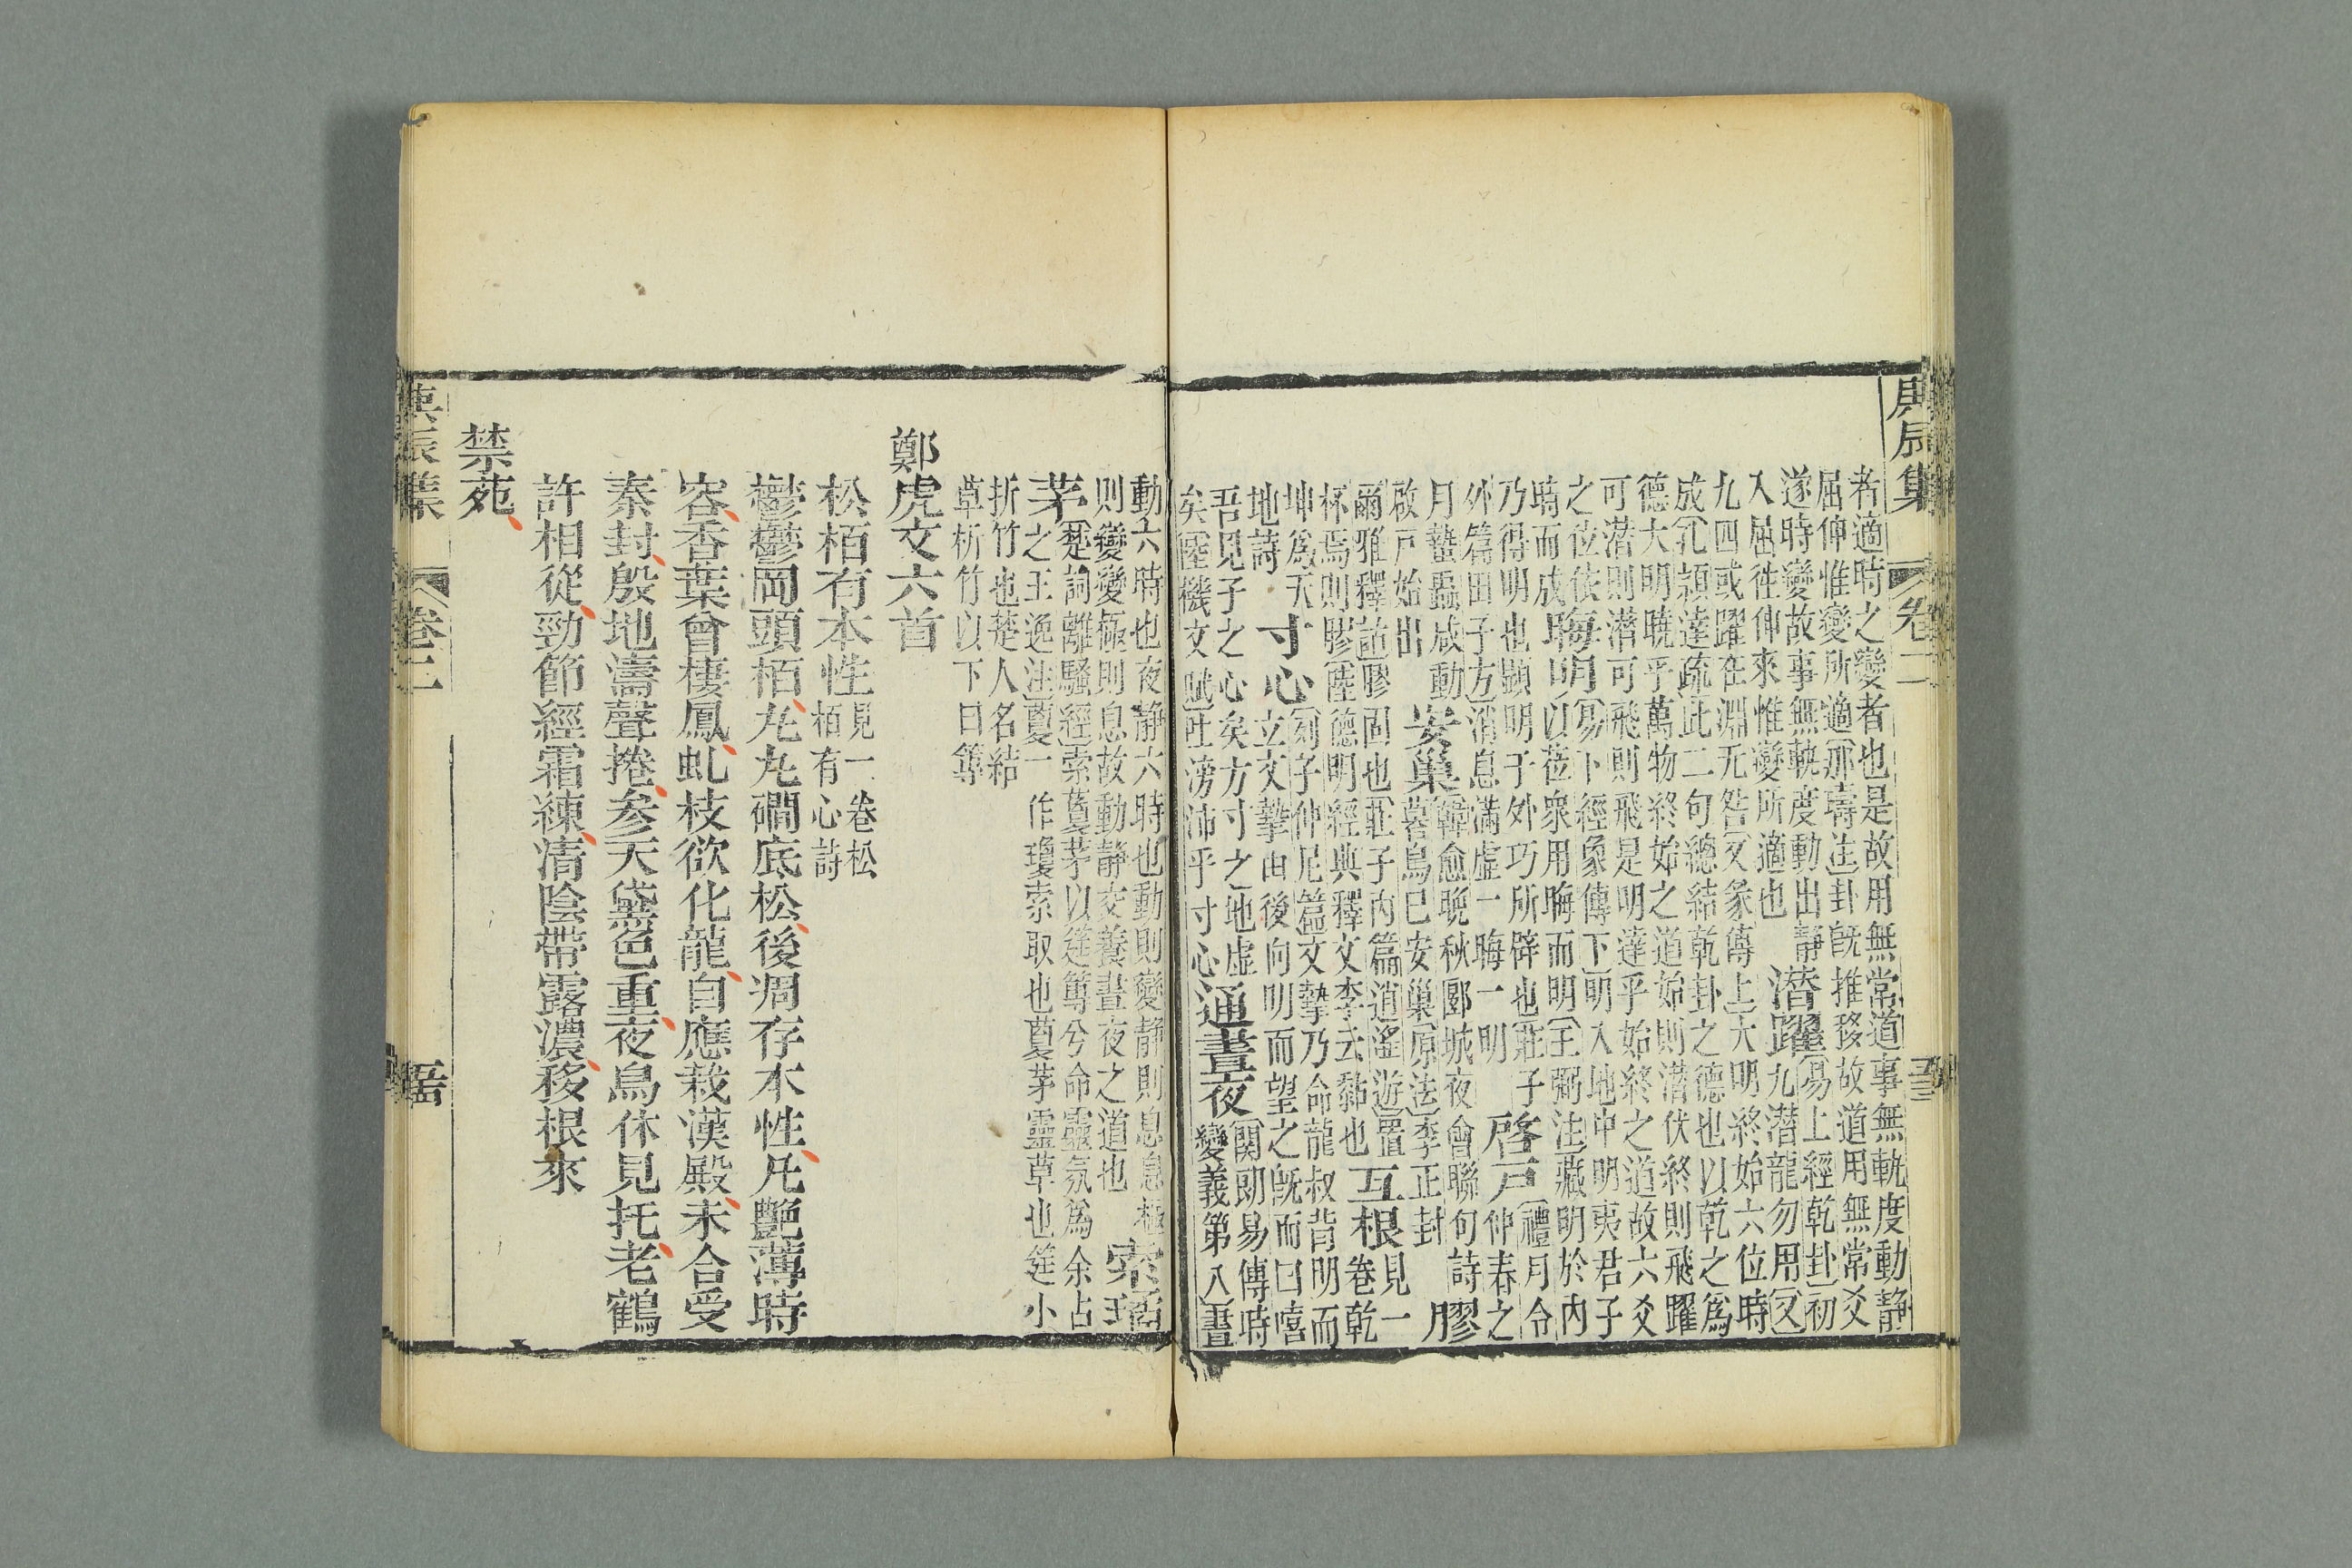 集
卷二
者適時之變者也是故用無常道事無軌度動靜
屈伸惟變所適〔那璹注〕卦旣推移故道用無常爻
遂時變故事無軌度動出靜
入屈徃伸來惟變所適也
潛躍
〔易上經乾卦〕初
九潛龍勿用〔又〕
九四或躍在淵无咎〔又彖傳上〕大明終始六位時
成〔孔穎達疏〕此二句總結乾卦之德也以乾之爲
德大明曉乎萬物終始之道始則潛伏終則飛躍
可潛則潛可飛則飛是明達乎始終之道故六爻
之位依
時而成
晦明
〔易下經象傳下〕明入地中明夷君子
以莅衆用晦而明〔王弼注〕藏明於內
乃得明也顯明于外巧所辟也〔莊子
外篇田子方〕消息滿虛一晦一明
啓戶
〔禮月令
仲春之
月蟄蟲咸動
啟戶始出
安巢
〔韓愈晚秋郾城夜會聯句詩
暮鳥已安巢〔原法〕李正封
膠
爾雅釋詁〕膠固也〔莊子內篇逍遙遊〕置
杯焉則膠〔陸德明經典釋文李云黏也
互根
見一
卷乾
坤爲天
地詩
寸心
〔列子仲尼篇〕文摯乃命龍叔背明而
立文摯由後向明而望之旣而曰嘻
吾見子之心矣方寸之地虛
矣〔陸機文賦〕吐滂沛乎寸心
通晝夜
〔關朗易傳時
變義第八〕晝
動六時也夜靜六時也動則變靜則息息極
則變變極則息故動靜交養晝夜之道也
索瑶
茅
〔楚詞離騷經〕索藑茅以筳篿兮命靈氛爲余占
之王逸注〔藑一作瓊索取也藑茅靈草也筳小
折竹也楚人名結
草析竹以下曰篿
鄭虎文六首
松栢有本性
見一卷松
栢有心詩
鬱鬱岡頭栢丸丸磵底松後凋存本性凡艷薄時
容香葉曾棲鳳虬枝欲化龍自應栽漢殿未合受
秦封殷地濤聲捲參天黛色重夜烏休見托老鶴
許相從勁節經霜練清陰帶露濃移根來
禁苑
集
卷二